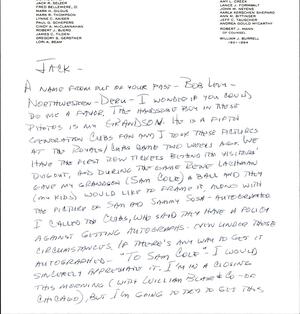 JACK R. SELZER
FRED BELLEMERE, III
MARK H. GILGUS
MARK B. THOMPSON
LYNNE C. KAISER
PAUL G. SCHEPERS
CINDY A. MCCLANNAHAN
ROBERT J. BJERG
JAMES C. TILDEN
GREGORY S. GERSTNER
LORI A. BEAM
AMY L. CREEK
LANCE J. FORMWALT
JOHN M. NEVENS
KARLA KERSCHEN SHEPARD
MARK W. BYTTINGER
JEFF C. TAUSCHER
ANDREA GOULD MCCARTHY
ROBERT L. MANN
OF COUNSEL
WILLIAM J. BURRELL
1931-1994
JACK -
A NAME FROM OUT OF YOUR PAST - BOB
NORTHWESTERN - DERU - I WONDER IF YOU COULD
DO ME A FAVOR. THE HANDSOME BOY IN THESE
PHOTOS IS MY GRANDSON. HE IS A FIFTH
GENERATION CUBS FAN AND I TOOK THESE PICTURES
AT THE ROYALS/CUBS GAME TWO WEEKS AGO. WE
HAVE THE FIRST ROW TICKETS BEHIND THE VISITORS'
DUGOUT, AND DURING THE GAME RENE LACHMAN
GAVE MY GRANDSON (SAM COLE) A BALL AND THEY
(MY KIDS) WOULD LIKE TO FRAME IT, ALONG WITH
THE PICTURE OF SAM AND SAMMY SOSA - AUTOGRAPHED
I CALLED THE CUBS, WHO SAID THEY HAVE A POLICY
AGAINST GETTING AUTOGRAPHS - EVEN UNDER THOSE
CIRCUMSTANCES. IF THERE'S ANY WAY TO GET IT
AUTOGRAPHED - "TO SAM COLE" - I WOULD
SINCERELY APPRECIATE IT. I'M IN A CLOSING
THIS MORNING (WITH WILLIAM BLAIR & CO - OF
CHICAGO), BUT I'M GOING TO TRY TO GET THIS